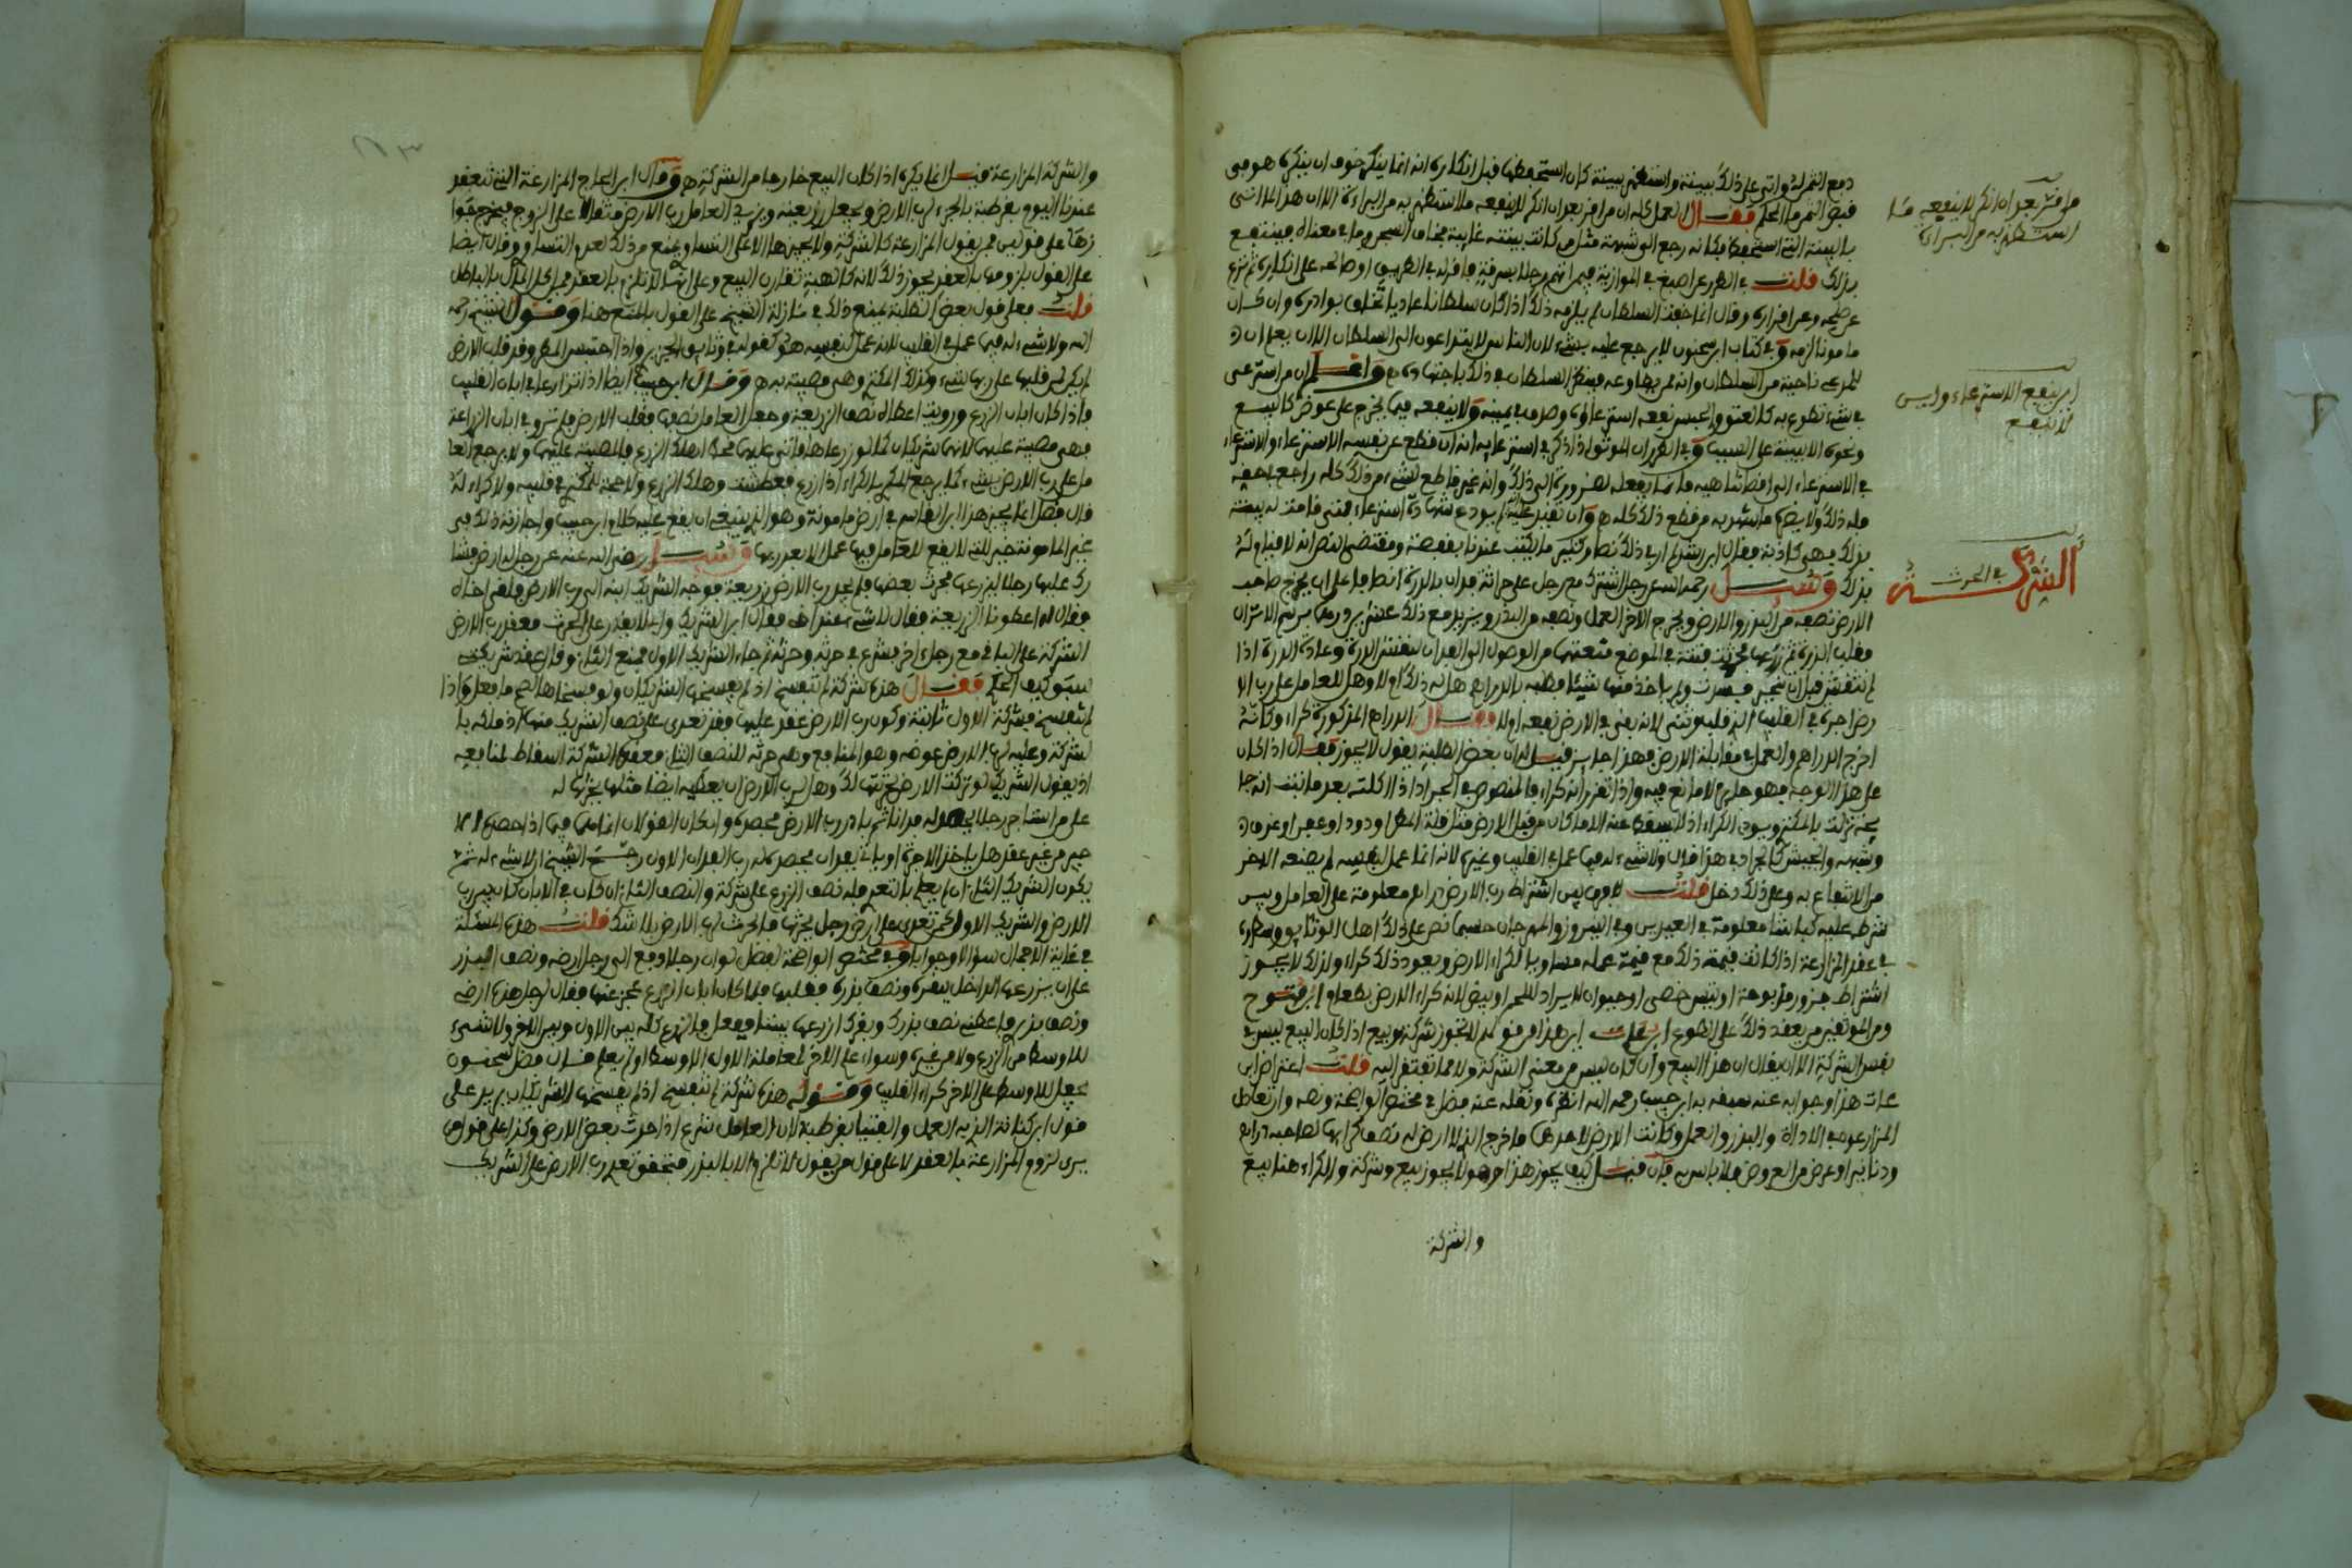 دفع الثمن له واتى على ذلك ببينة واستظهر ببينة كان استحفظها قبل انكاره انه انما ينكر خوف ان ينكره هو في
قبض الثمن ما الحكم فقال العمل كله ان من اقر بعد ان انكر لا ينفعه ما استظهر به من البراءة الا ان هذا لما اتى
بالبينة التي استحفظ فكانه رجع الى شبهة مثل من كانت بينته غايبة فخاف السجن وما في معناه فينتفع
بذلك قلت في الطرر عن اصبغ في الموازية فيمن اتهم رجلا بسرقة فاقر له في الطريق او صالحه على انكاره ثم نزع
عن صلحه وعن اقراره وقال انما خفت السلطان لم يلزمه ذلك اذا كان سلطانا عاديا تخاف بوادره وان كان
مامونا لزمه وفي كتاب ابن سحنون لا يرجع عليه بشيء لان الناس لا يتداعون الى السلطان الا ان يعلم ان
المدعي ناحية من السلطان وانه ممن يطاوعه فينظر السلطان في ذلك باجتهاده واعلم ان من استرعى
في شيء تطوع به كالعتق والحبس نفعه استرعاؤه وصدق في يمينه ولا ينفعه فيما يخرج على عوض كالبيع
ونحوه الا ببينة على السبب وفي الطرر ان الموثق اذا ذكر في استرعايه انه ان قطع عن نفسه الاسترعاء والاسترعاء
في الاسترعاء الى اقصى تناهيه فانما يفعله لضرورة الى ذلك وانه غير قاطع لشيء من ذلك كله راجع لحقه
فله ذلك ولا يضره ما اشهد به من قطع ذلك كله
بذلك فهي كاذبة فقال ابن رشد لم ار في ذلك نصا وكثير ما يكتب عندنا بقفصة ومقتضى النص انه لا قيام له
بذلك وسئل رحمه الله عن رجل اشترك مع رجل على حراثة فدان بالذرة انصافا على ان يخرج صاحب
الارض نصفه من البذر والارض ويخرج الاخر العمل ونصفه من البذر ويزيد مع ذلك عشرين درهما برسم الاشتراك
لم تتفتش قبل ان تنجبر فسدت ولم ياخذ منها شيئا فطلبه بالدراهم هل له ذلك ام لا وهل للعامل على رب الا
رض اجرة في القليب الذي قلبه شتى لانه بقي في الارض نفعه ام لا فقال الدراهم المذكورة كراء وكانه
اخرج الدراهم والعمل في مقابلة الارض فهذا جايز قيل له ان بعض الطلبة يقول لا يجوز فقال اذا كان
على هذا الوجه فهو جايز لا مانع فيه واذا تقرر انه كراء فالمنصوص في الجراد اذا اكلته بعد ما نبت انه جا
يحة نزلت بالمكتري ويودي الكراء اذ لا يسقط عنه الا ما كان من قبل الارض مثل قلة المطر او دود او عفن او غرق
وشبهه والجيش كالجراد في هذا قال ولا شيء له فيما عمل في القليب وغيره لانه انما عمل لنفسه لم يضعه الاخر
من الانتفاع به وعلى ذلك دخل قلت لا فرق بين اشتراط رب الارض دراهم معلومة على العامل وبين
شرطه عليه كباشا معلومة في العيدين وفي النيروز والمهرجان حسبما نص على ذلك اهل الوثايق وسطروه
في عقد المزارعة اذا كانت قيمة ذلك مع قيمة عمله مساويا لكراء الارض ويعود ذلك كراء ولذلك لا يجوز
اشتراط جزور مذبوحة او تيس خصي او حيوان لا يراد الا للحم او بيض لانه كراء الارض بطعام ابن فتوح
ومن الموثقين من يعقد ذلك على الطوع ابن عات اين هذا من قولهم لا تجوز شركة وبيع اذا كان البيع ليس في
نفس الشركة الا ان يقال ان هذا البيع وان كان ليس من معنى الشركة ولا مما تفتقر اليه قلت اعتراض ابن
عات هذا وجوابه عنه سبقه به ابن حبيب رحمه الله انظره ونقله عنه فضل في مختصر الواضحة ونصه وان تعاطى
المزارعون في الاداة والبذر والعمل وكانت الارض لاحدهما فاخرج الذي لا ارض له نصف كرائها لصاحبه دراهم
ودنانير او عرض من العروض فلا باس به فان قيل كيف يجوز هذا وهو لا يجوز بيع وشركة ولا كراء هنا بيع
والشركة
ما اقر بعد ان انكر لا ينفعه ما
استظهر به من البراءة
اين ينفع الاسترعاء واين
لا ينفع
الشركة في الحرث
والشركة المزارعة قيل انما يكره اذا كان البيع خارجا من الشركة وقال ابن الحاج المزارعة التي تنعقد
عندنا اليوم بقرطبة بالجزء لرب الارض ويجعل زريعته ويزيد العامل رب الارض مثقالا على الزوج فيخرج جوا
زها على قولين فمن يقول المزارعة كالشركة ولا يجيزها الا على التساوي منع من ذلك لعدم التساوي وقال ايضا
على القول بلزومها بالعقد يجوز ذلك لانه كالهبة تقارن البيع وعلى انها لا تلزم بالعقد فمن اكل المال بالباطل
قلت فعلى قول بعض الطلبة يمنع ذلك في نازلة الشيخ على القول بالمنع هنا وقول الشيخ رحمه
الله ولا شيء له فيما عمل في القليب لانه عمل لنفسه هو كقوله في وثايق الجزيري واذا احتبس المطر وقد قلب الارض
لم يكن له في قلبها على ربها شيء وكذلك المكتري وهي مصيبة به وقال ابن حبيب ايضا اذا تزارعا في ابان القليب
فاذا كان ابان الزرع ورويت اعطاه نصف الزريعة وجعل العامل نصفها فقلب الارض فلم ترو في ابان الزراعة
فهي مصيبة عليهما لانهما شريكان كما لو زرعاها فاتى عليهما قحط اهلك الزرع فالمصيبة عليهما ولا يرجع العا
مل على رب الارض بشيء كما يرجع المكتري بالكراء اذا زرع فعطشت وهلك الزرع ولا حجة للمكتري في قلبه ولا كراء له
قال فضل انما يجيز هذا ابن القاسم في ارض مامونة وهو الذي ينبغي ان يقع عليه كلام ابن حبيب واجازته ذلك في
غير المامونة خير لئلا يقع للعامل فيها عمل الا بعد ريها وسئل رضي الله عنه عن رجل له ارض فشا
رك عليها رجلا ليزرعها فحرث بعضها فلم يجد رب الارض زريعة فوجه الشريك ابنه الى رب الارض فلقي اخاه
فقال له اعطونا الزريعة فقال لا شيء عندنا فقال ابن الشريك والدي لا يقدر على الحرث فعقد رب الارض
الشركة على الباقي مع رجل اخر فشرع في حرثه وحرثه ثم جاء الشريك الاول فمنع الثاني وقال عقد شركتي
بيننا كيف الحكم فقال هذه شركة لم تنفسخ اذ لم يفسخها الشريكان ولو فسخاها لصح ما فعل واذا
لم تنفسخ فشركة الاول ثابتة وكون رب الارض عقد عليها فقد تعدى على نصف الشريك منها اذ ملكه با
لشركة وعليه لرب الارض عوضه وهو المنافع وله حرثه للنصف الثاني فعقده الشركة اسقاط لمنافعه
اذ يقول الشريك لو تركت الارض لحرثتها لك وهل لرب الارض ان يعطيه ايضا مثلها يحرثها له
على من استاجر رجلا يحصد له فدانا ثم بادر رب الارض فحصده والحكم القولان انما هي فيما اذا حصد الا
جير من غير عقد هل ياخذ الاجرة او ياتي بفدان يحصده لرب الفدان الاول رجح الشيخ ان لا شيء له ثم
يكون الشريك الثاني ان لم يعلم بالتعدي فله نصف الزرع على شركته والنصف الثاني ان كان في الابان كان بين رب
الارض والشريك الاول كمن تعدى على ارض رجل يحرثها فالحرث لرب الارض بلا شك قلت هذه المسئلة
في غاية الاجمال سؤالا وجوابا وفي مختصر الواضحة لفضل لو ان رجلا دفع الى رجل ارضه ونصف البذر
على ان يزرعها الداخل ببقره ونصف بذره فقلبها فلما كان ابان الزرع عجز عنها فقال لرجل هذه ارضي
ونصف بذر فاعطني نصف بذرك وبقرك ازرعها بيننا ففعل فالزرع كله بين الاول وبين الاخر ولا شيء
للاوسط من الزرع ولا من غيره وسواء علم الاخر لمعاملة الاول الاوسط او لم يعلم قال فضل سحنون
يجعل للاوسط على الاخر كراء القليب وقوله هذه شركة لم تنفسخ اذ لم يفسخها الشريكان يريد على
قول ابن كنانة الذي به العمل والفتيا بقرطبة لان العامل شرع اذا حرث بعض الارض وكذا على قول من
يرى لزوم المزارعة بالعقد لا على قول من يقول لا تلزم الا بالبذر فتحقق تعدي رب الارض على الشريك